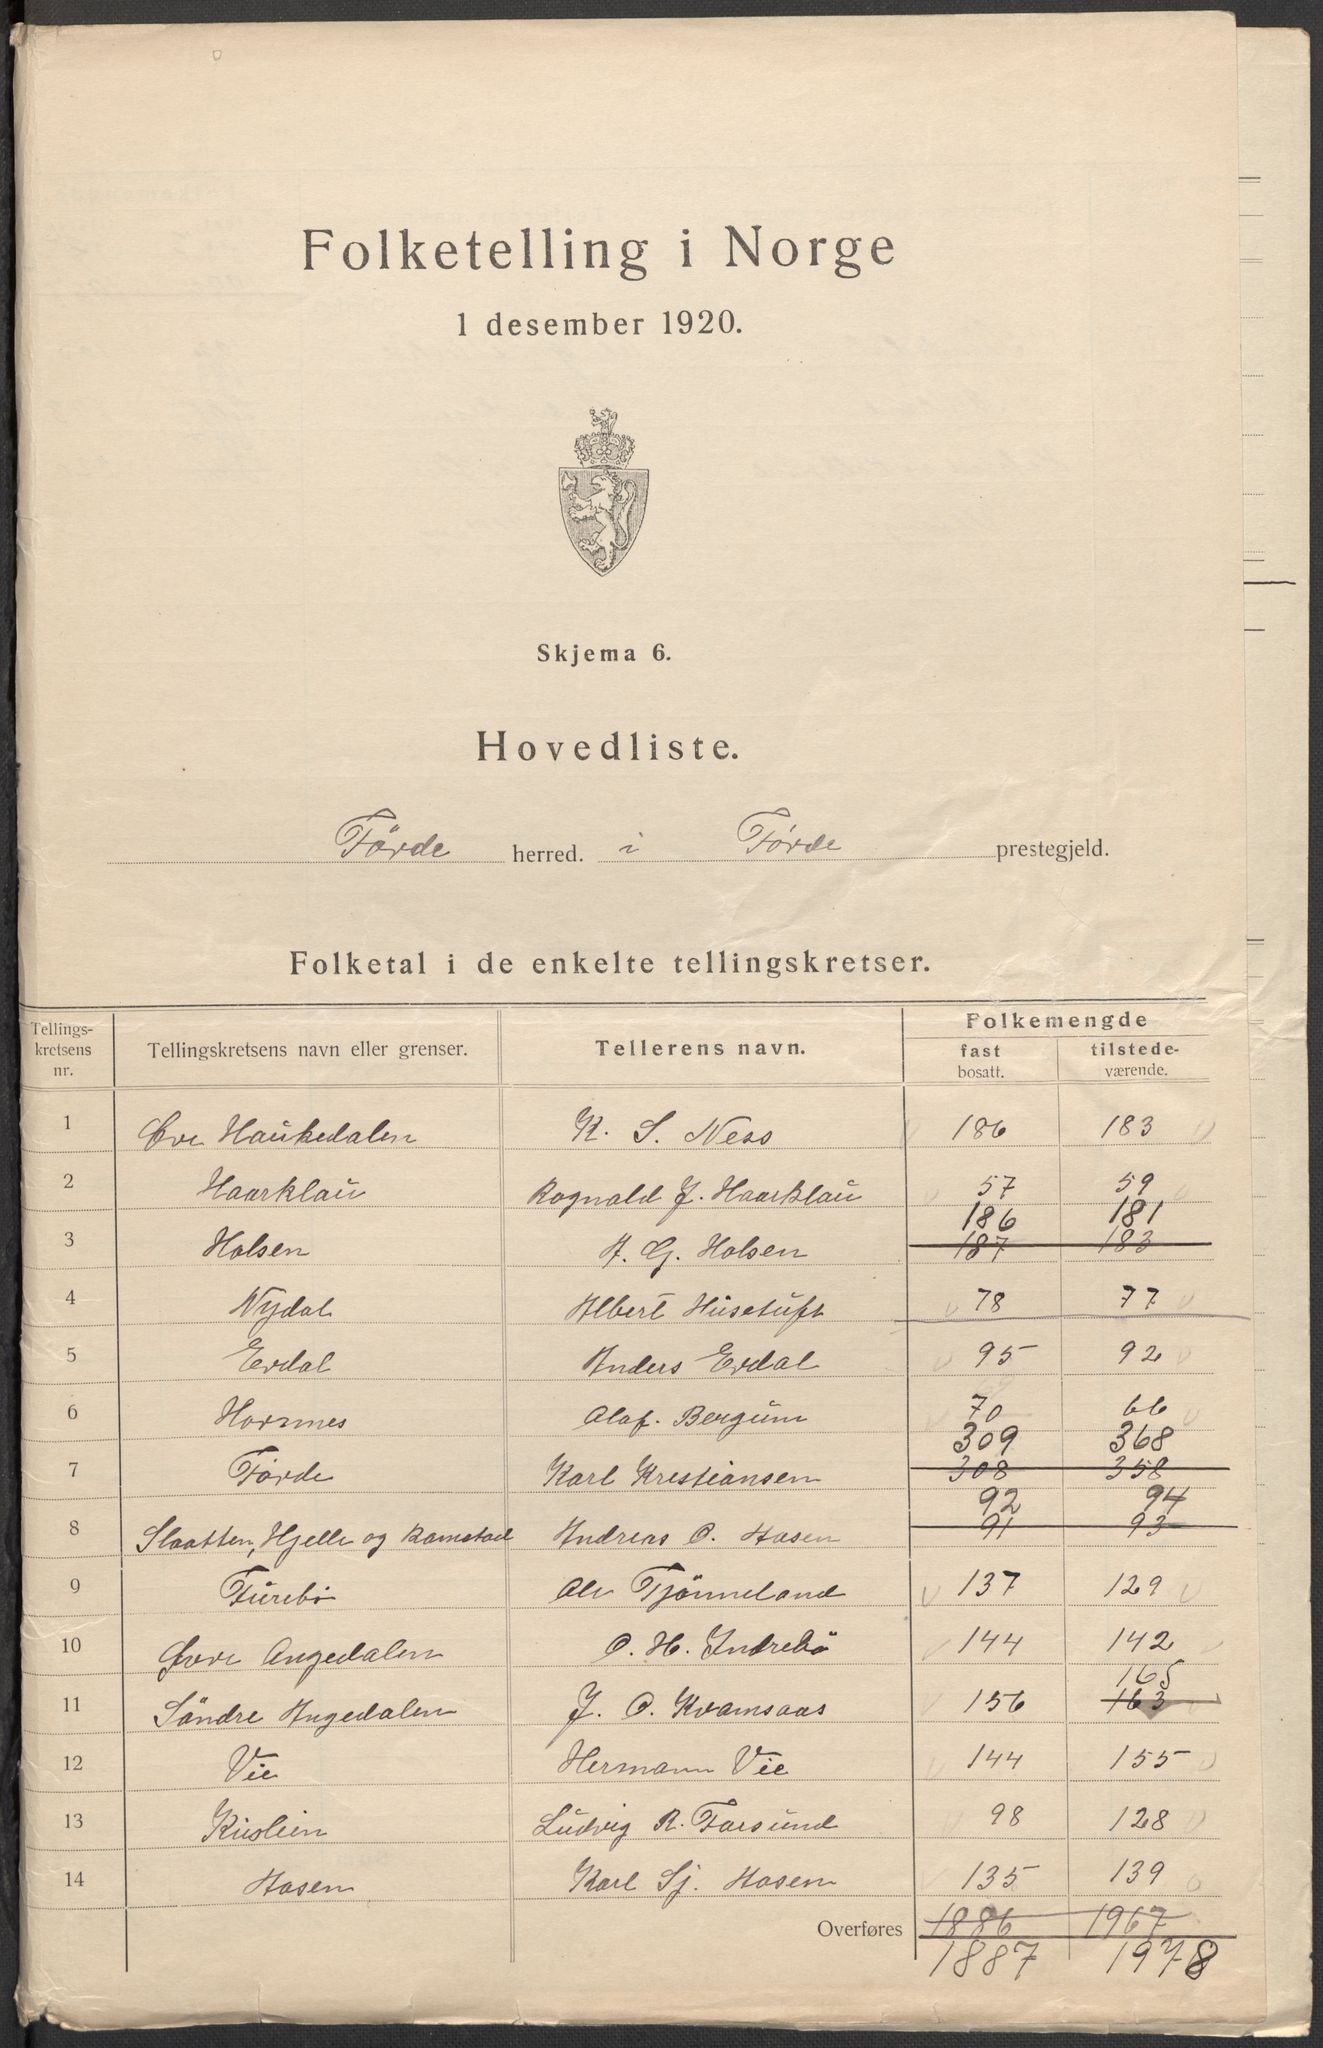 Folketelling i Norge
1 desember 1920.
Skjema 6.
Hovedliste.
Förde herred. i Førde prestegjeld.
Folketal i de enkelte tellingskretser.
Tellings-kretsens nr. Tellingskretsens navn eller grenser. Tellerens navn. Folkemengde
fast bosatt. tilstede-værende.
1 Øvre Haukedalen K. S. Ness 186 183
2 Haarklau Rognald J. Haarklau 57 59
186 181
3 Holsen A. G. Holsen 187 183
4 Nydal Albert Húsetuft 78 77
5 Erdal Anders Erdal 95 92
6 Hornnes Olaf. Bergum 70 66
309 368
7 Førde Karl Kristiansen 308 358
92 94
8 Slaatten, Hjelle og Ramstad Andreas O. Aasen 91 93
9 Furebö Ole Tjönneland 137 129
10 Øvre Angedalen O. H. Indrebö 144 142
165
11 Söndre Angedalen J. O. Kvamsaas 156 163
12 Vie Hermann Vie 144 155
13 Kuslien Ludvig R. Farsund 98 128
14 Aasen Karl Sj. Aasen 135 139
Overføres 1886 1967
1887 1978